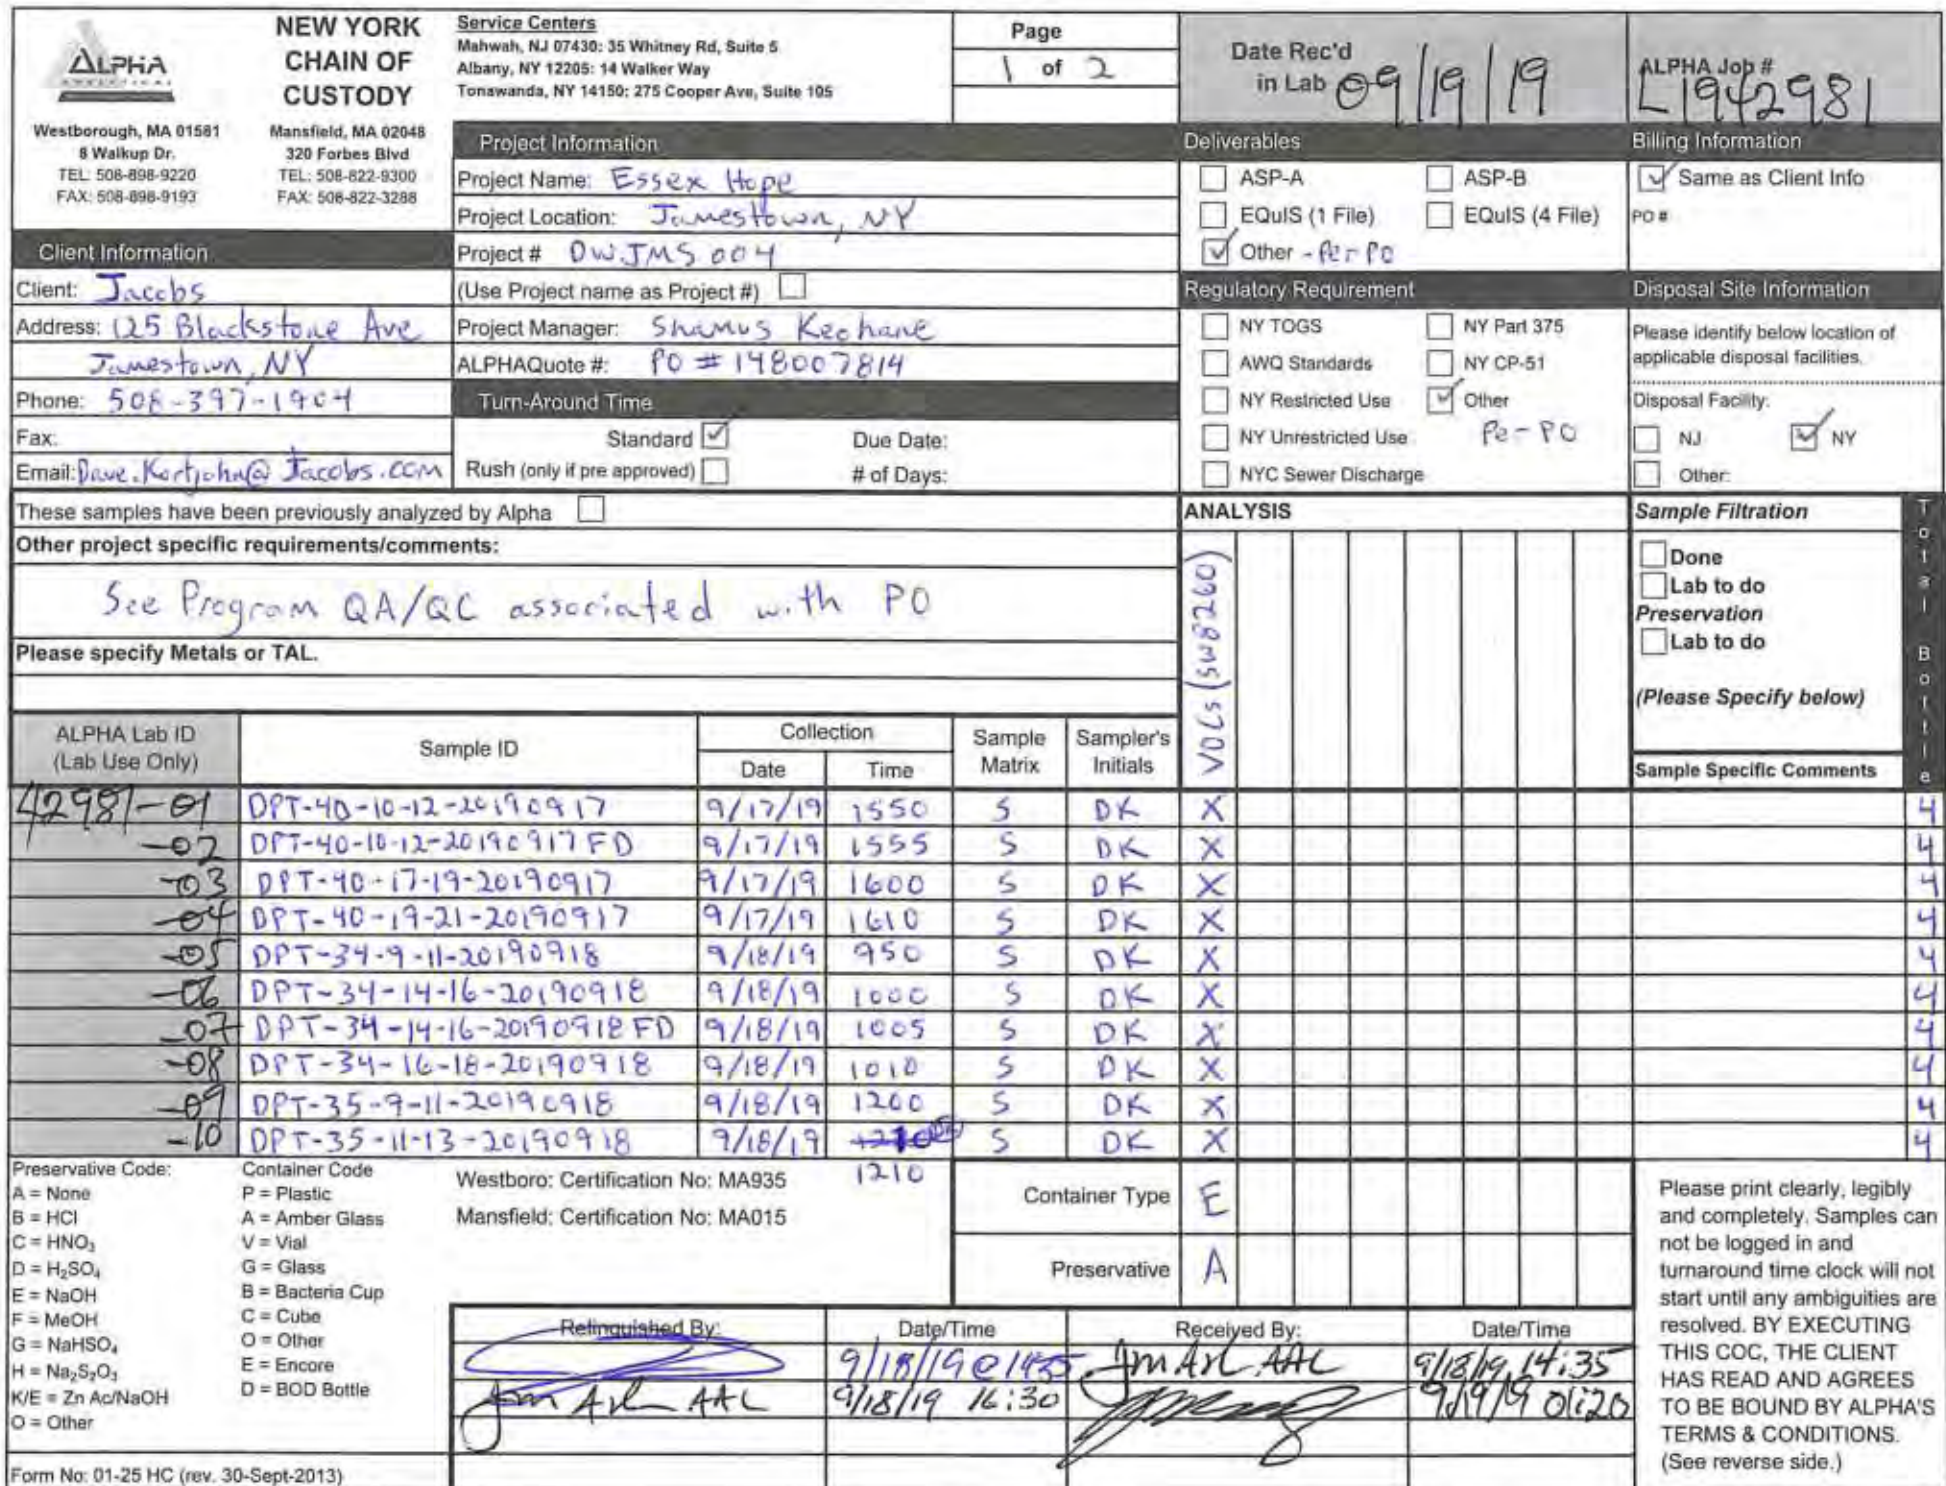 ALPHA
ANALYTICAL
NEW YORK
CHAIN OF
CUSTODY
Westborough, MA 01581
8 Walkup Dr.
TEL: 508-898-9220
FAX: 508-898-9193
Mansfield, MA 02048
320 Forbes Blvd
TEL: 508-822-9300
FAX: 508-822-3288
Service Centers
Mahwah, NJ 07430: 35 Whitney Rd, Suite 5
Albany, NY 12205: 14 Walker Way
Tonawanda, NY 14150: 275 Cooper Ave, Suite 105
Page
1 of 2
Date Rec'd
in Lab 09/19/19
ALPHA Job #
L1942981
Client Information
Client: Jacobs
Address: 125 Blackstone Ave
Jamestown, NY
Phone: 508-397-1904
Fax:
Email: Dave.Kortjohn@Jacobs.com
Project Information
Project Name: Essex Hope
Project Location: Jamestown, NY
Project # DWJMS004
(Use Project name as Project #)
Project Manager: Shamus Keohane
ALPHAQuote #: PO # 148007814
Turn-Around Time
Standard ✓ Due Date:
Rush (only if pre approved) # of Days:
Deliverables
ASP-A ASP-B
EQuIS (1 File) EQuIS (4 File)
✓ Other - Per PO
Regulatory Requirement
NY TOGS NY Part 375
AWQ Standards NY CP-51
NY Restricted Use ✓ Other
NY Unrestricted Use Per PO
NYC Sewer Discharge
Billing Information
✓ Same as Client Info
PO #
Disposal Site Information
Please identify below location of
applicable disposal facilities.
Disposal Facility:
NJ ✓ NY
Other:
These samples have been previously analyzed by Alpha
Other project specific requirements/comments:
See Program QA/QC associated with PO
Please specify Metals or TAL.
ANALYSIS
VOCs (SW8260)
Sample Filtration
Done
Lab to do
Preservation
Lab to do
(Please Specify below)
Sample Specific Comments
Total Bottle
ALPHA Lab ID
(Lab Use Only)
Sample ID
Collection
Date Time
Sample
Matrix
Sampler's
Initials
42981-01 DPT-40-10-12-20190917 9/17/19 1550 S DK X 4
-02 DPT-40-10-12-20190917FD 9/17/19 1555 S DK X 4
-03 DPT-40-17-19-20190917 9/17/19 1600 S DK X 4
-04 DPT-40-19-21-20190917 9/17/19 1610 S DK X 4
-05 DPT-34-9-11-20190918 9/18/19 950 S DK X 4
-06 DPT-34-14-16-20190918 9/18/19 1000 S DK X 4
-07 DPT-34-14-16-20190918FD 9/18/19 1005 S DK X 4
-08 DPT-34-16-18-20190918 9/18/19 1010 S DK X 4
-09 DPT-35-9-11-20190918 9/18/19 1200 S DK X 4
-10 DPT-35-11-13-20190918 9/18/19 S DK X 4
1210
Preservative Code:
A = None
B = HCl
C = HNO₃
D = H₂SO₄
E = NaOH
F = MeOH
G = NaHSO₄
H = Na₂S₂O₃
K/E = Zn Ac/NaOH
O = Other
Container Code
P = Plastic
A = Amber Glass
V = Vial
G = Glass
B = Bacteria Cup
C = Cube
O = Other
E = Encore
D = BOD Bottle
Westboro: Certification No: MA935
Mansfield: Certification No: MA015
Container Type E
Preservative A
Relinquished By: Date/Time Received By: Date/Time
9/18/19 @ 1435 AAL 9/18/19 14:35
AAL 9/18/19 16:30 9/19/19 01:20
Please print clearly, legibly
and completely. Samples can
not be logged in and
turnaround time clock will not
start until any ambiguities are
resolved. BY EXECUTING
THIS COC, THE CLIENT
HAS READ AND AGREES
TO BE BOUND BY ALPHA'S
TERMS & CONDITIONS.
(See reverse side.)
Form No: 01-25 HC (rev. 30-Sept-2013)